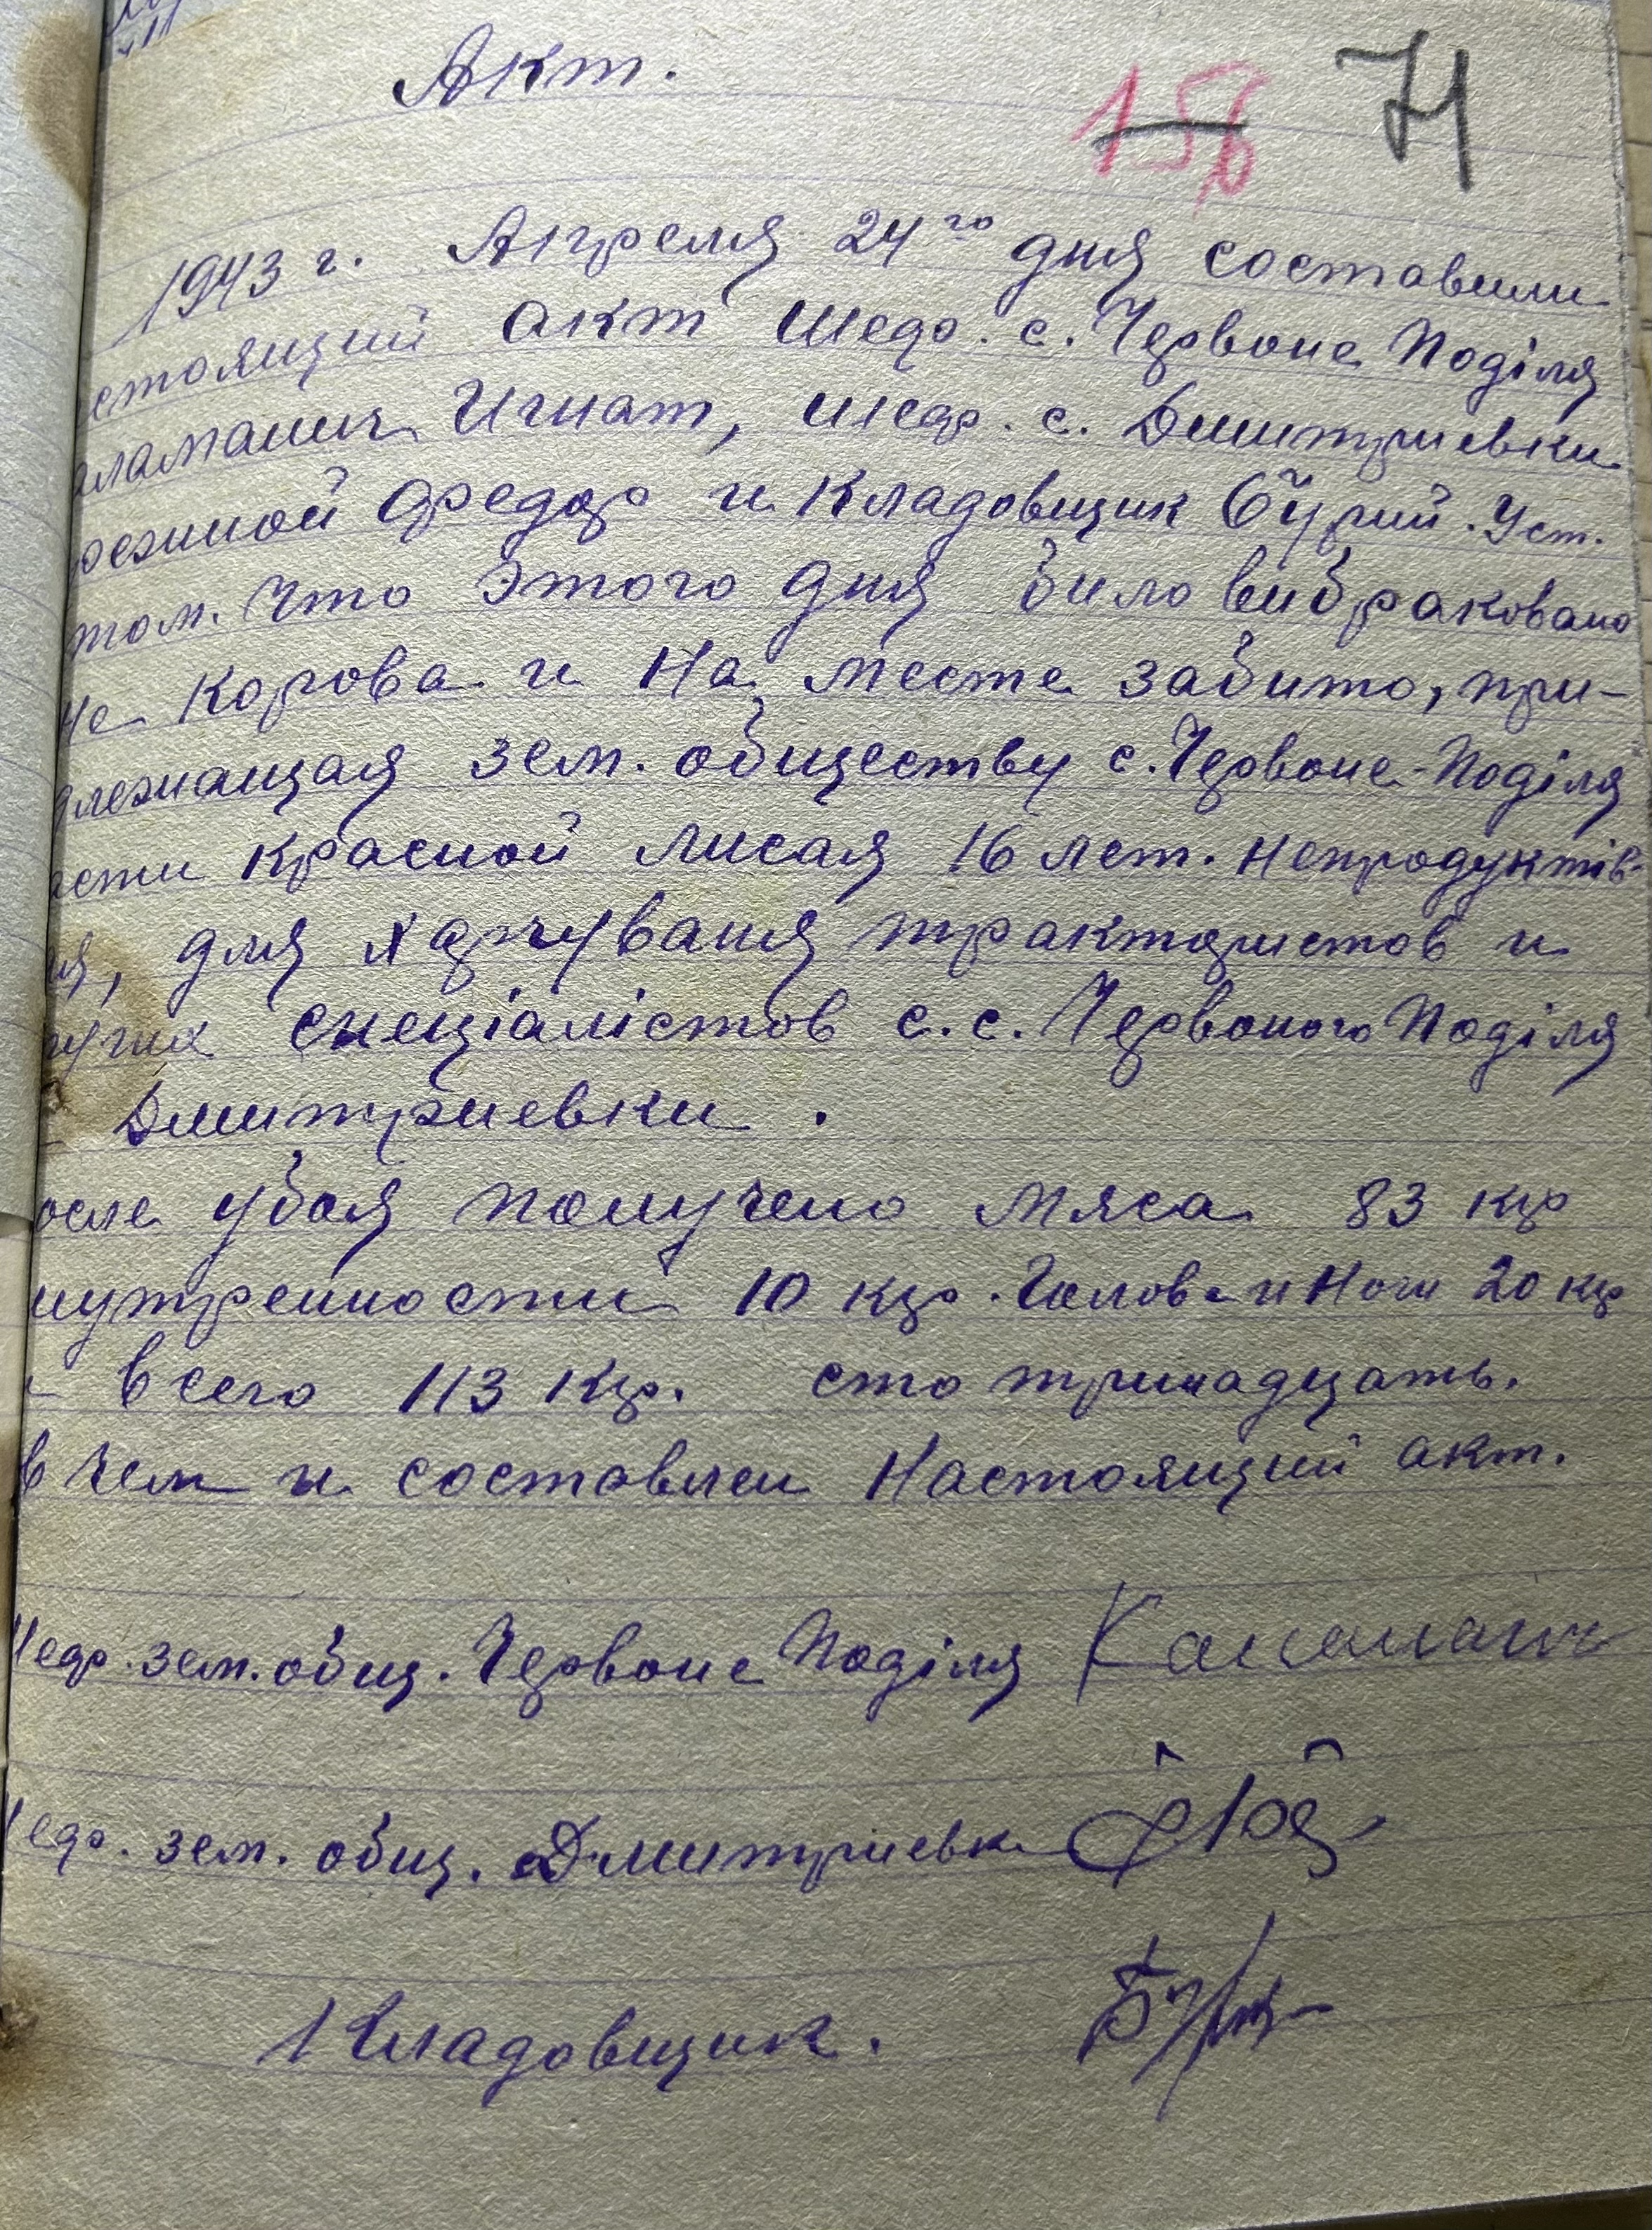 Акт.
156 71
1943 г. Апреля 24го дня составили
стоящий акт Шеф. с. Червоне Поділя
аламанич Игнат, шеф. с. Дмитриевки
режной Федор и кладовщик Бурий. Уст.
том. что этого дня било вибраковано
не корова и на месте забито, при-
длежащая зем. обществу с. Червоне-Поділя
асти красной лисая 16 лет. непродуктів-
ая, для харчуваня трактористов и
ругих спеціалістов с.с. Червоного Поділя
Дмитриевки.
осле убоя получено мяса 83 кгр
нутренности 10 кгр. Голова и Ноги 20 кгр
всего 113 кгр. сто тринадцать.
в чем и составлен настоящий акт.
Шеф. зем. общ. Червоне Поділя
еф. зем. общ. Дмитриевк
Кладовщик.